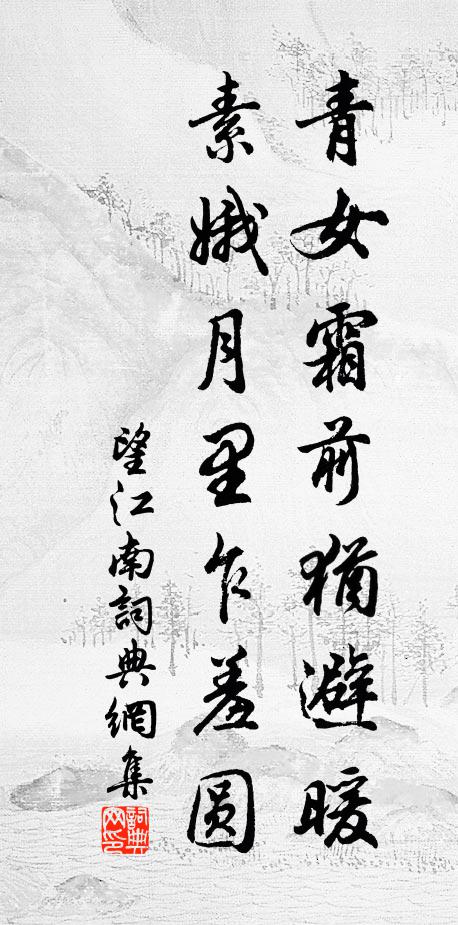 青女霜前猶避暖
素娥月里乍羞圆
望江南詞典網集
詞典网印